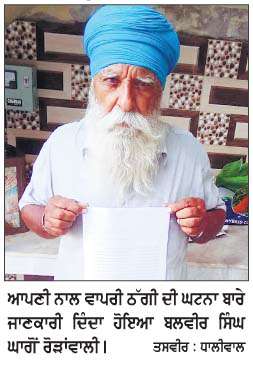 ਆਪਣੀ ਨਾਲ ਵਾਪਰੀ ਠੱਗੀ ਦੀ ਘਟਨਾ ਬਾਰੇ
ਜਾਣਕਾਰੀ ਦਿੰਦਾ ਹੋਇਆ ਬਲਵੀਰ ਸਿੰਘ
ਘਾਗੋਂ ਰੋੜਾਂਵਾਲੀ। ਤਸਵੀਰ : ਧਾਲੀਵਾਲ